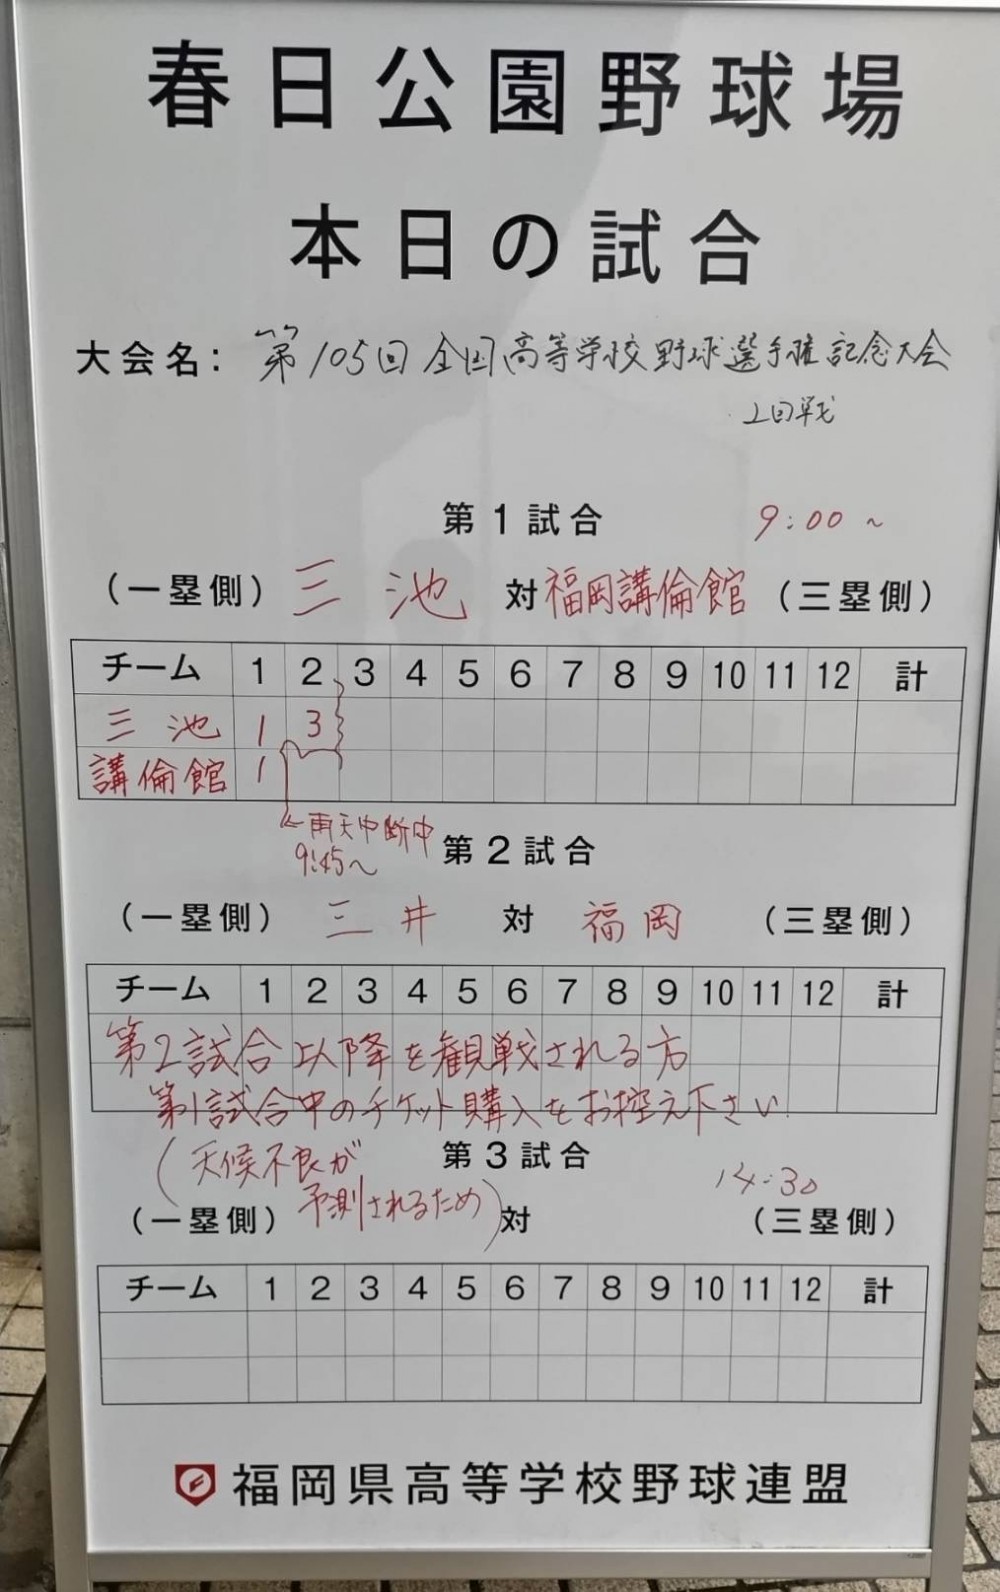 春日公園野球場
本日の試合
大会名: 第105回全国高等学校野球選手権記念大会
2回戦
第1試合 9:00~
(一塁側) 三池 対 福岡講倫館 (三塁側)
チーム 1 2 3 4 5 6 7 8 9 10 11 12 計
三池 1 3
講倫館 1
←雨天中断中
9:45~
第2試合
(一塁側) 三井 対 福岡 (三塁側)
チーム 1 2 3 4 5 6 7 8 9 10 11 12 計
第2試合以降を観戦される方
第1試合中のチケット購入をお控え下さい
(天候不良が
予測されるため)
第3試合 14:30
(一塁側) 対 (三塁側)
チーム 1 2 3 4 5 6 7 8 9 10 11 12 計
福岡県高等学校野球連盟